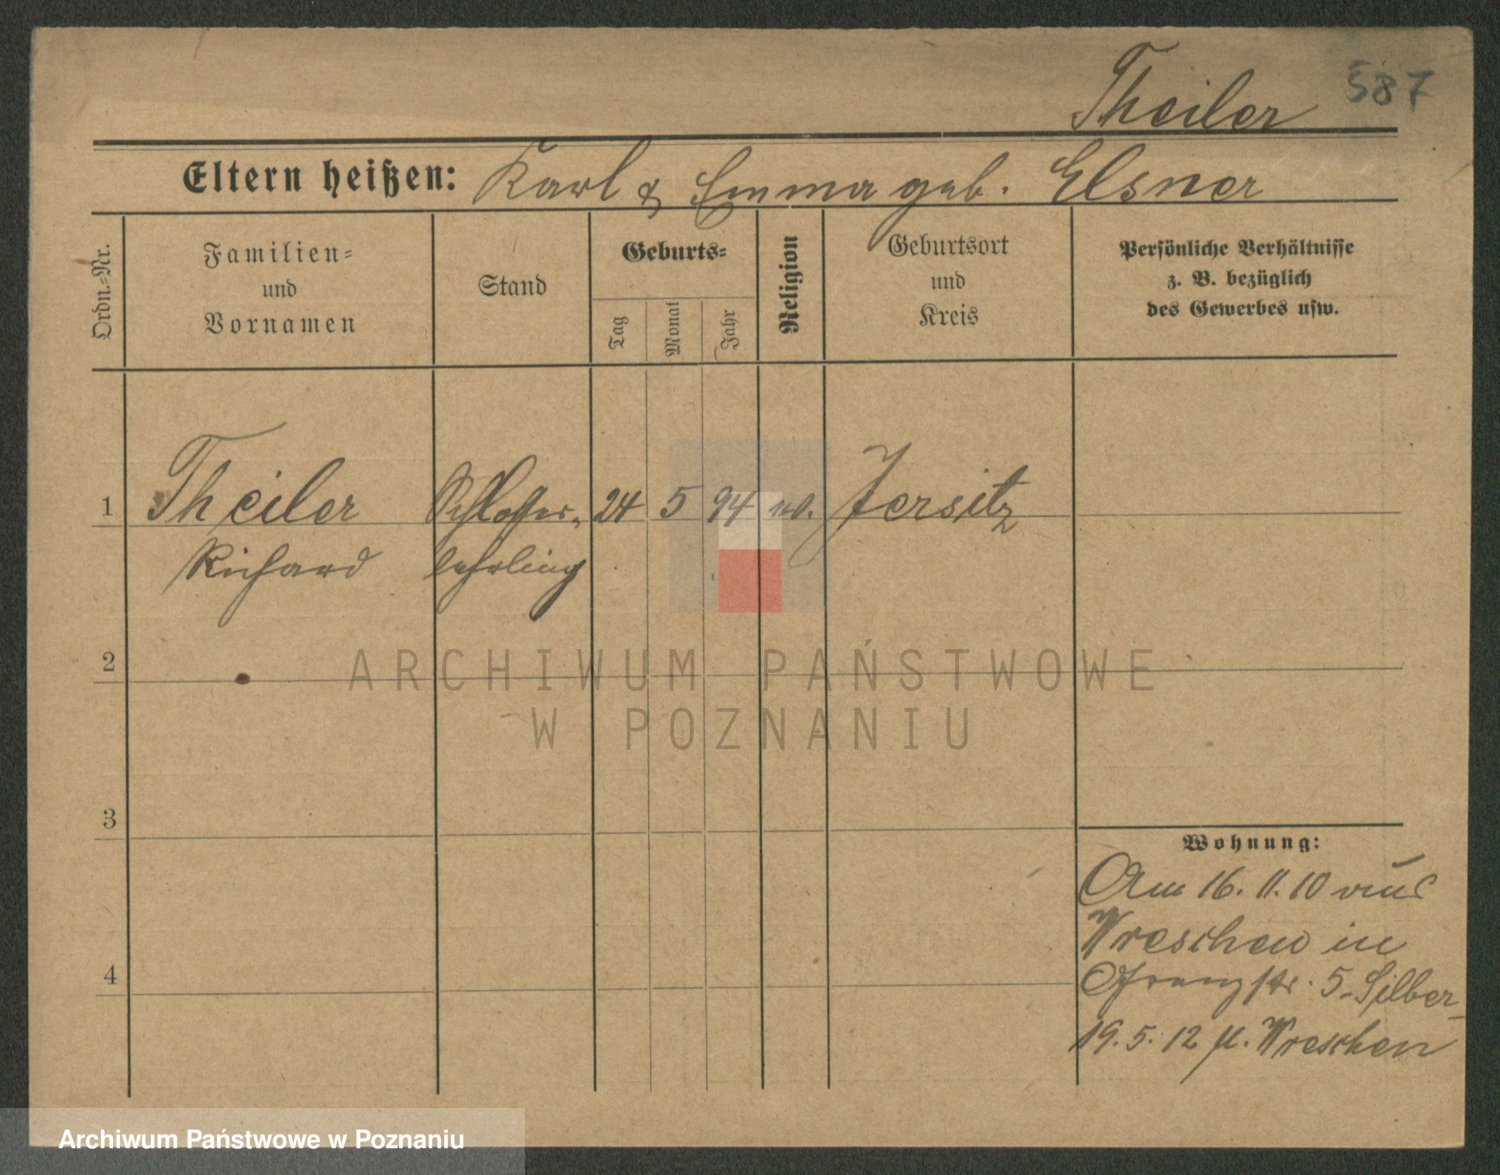 587
Theiler
Eltern heißen: Karl & Emma geb. Elsner
Ordn.=Nr.
Familien=
und
Vornamen
Stand
Geburts=
Tag
Monat
Jahr
Religion
Geburtsort
und
Kreis
Persönliche Verhältnisse
z. B. bezüglich
des Gewerbes usw.
1 Theiler Schlosser- 24 5 94 Jersitz
Richard lehrling
2
3
4
Wohnung:
Am 16. 11. 10 aus
Wreschen in
5 - Silber
19. 5. 12 Wreschen
ARCHIWUM PAŃSTWOWE
W POZNANIU
Archiwum Państwowe w Poznaniu